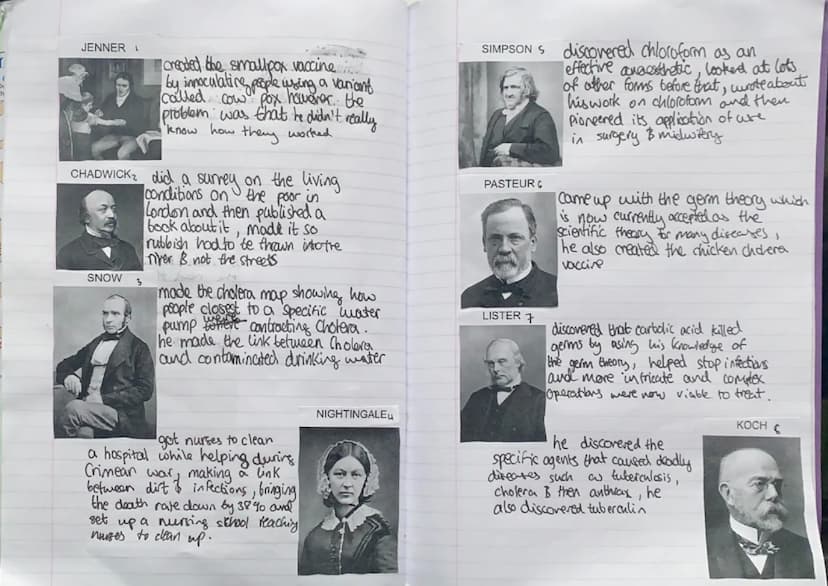 JENNER 1
created the smallpox vaccine
by innoculating people using a variant
called cow pox however the
problem was that he didn't really
know how they worked
CHADWICK 2
did a survey on the living
conditions on the poor in
London and then published a
book about it, made it so
rubbish had to be thrown into the
river & not the streets
SNOW 3
made the cholera map showing how
people closest to a specific water
pump were contracting Cholera.
he made the link between Cholera
and contaminated drinking water
NIGHTINGALE 4
got nurses to clean
a hospital while helping during
Crimean war, making a link
between dirt & infections, bringing
the death rate down by 38% and
set up a nursing school teaching
nurses to clean up.
SIMPSON 5
discovered chloroform as an
effective anaesthetic, looked at lots
of other forms before that, wrote about
his work on chloroform and then
pioneered its application of use
in surgery & midwifery
PASTEUR 6
came up with the germ theory which
is now currently accepted as the
scientific theory for many diseases,
he also created the chicken cholera
vaccine
LISTER 7
discovered that carbolic acid killed
germs by using his knowledge of
the germ theory, helped stop infections
and more intricate and complex
operations were now viable to treat.
KOCH
he discovered the
specific agents that caused deadly
diseases such as tuberculosis,
cholera & then anthrax, he
also discovered tuberculin